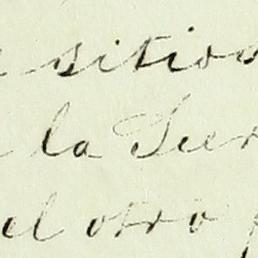 sitios
la Sier
el otro